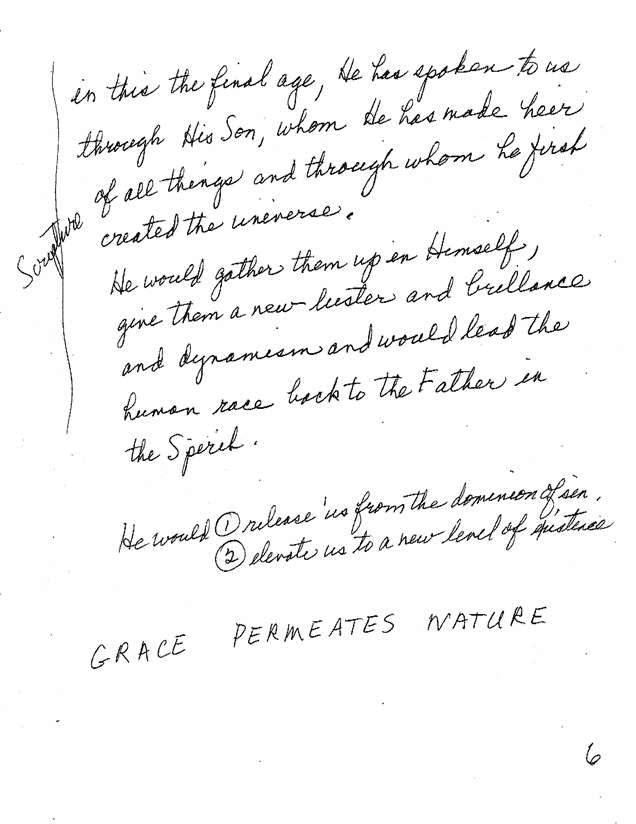 in this the final age, He has spoken to us
through His Son, whom He has made heir
of all things and through whom he first
created the universe.
Scripture
He would gather them up in Himself,
give them a new luster and brillance
and dynamism and would lead the
human race back to the Father in
the Spirit.
He would ① release us from the dominion of sin.
② elevate us to a new level of existence
GRACE PERMEATES NATURE
6